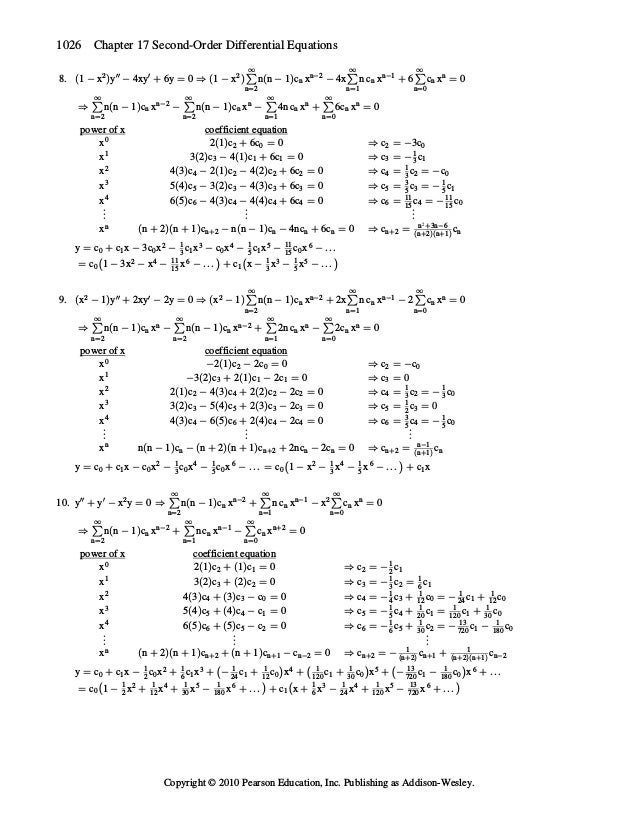 1026 Chapter 17 Second-Order Differential Equations
8. (1 − x²)y″ − 4xy′ + 6y = 0 ⇒ (1 − x²) ∞∑n=2 n(n − 1)cₙ xⁿ⁻² − 4x ∞∑n=1 n cₙ xⁿ⁻¹ + 6 ∞∑n=0 cₙ xⁿ = 0
⇒ ∞∑n=2 n(n − 1)cₙ xⁿ⁻² − ∞∑n=2 n(n − 1)cₙ xⁿ − ∞∑n=1 4n cₙ xⁿ + ∞∑n=0 6cₙ xⁿ = 0
power of x coefficient equation
x⁰ 2(1)c₂ + 6c₀ = 0 ⇒ c₂ = −3c₀
x¹ 3(2)c₃ − 4(1)c₁ + 6c₁ = 0 ⇒ c₃ = −1/3 c₁
x² 4(3)c₄ − 2(1)c₂ − 4(2)c₂ + 6c₂ = 0 ⇒ c₄ = 1/3 c₂ = −c₀
x³ 5(4)c₅ − 3(2)c₃ − 4(3)c₃ + 6c₃ = 0 ⇒ c₅ = 3/5 c₃ = −1/5 c₁
x⁴ 6(5)c₆ − 4(3)c₄ − 4(4)c₄ + 6c₄ = 0 ⇒ c₆ = 11/15 c₄ = −11/15 c₀
⋮ ⋮ ⋮
xⁿ (n + 2)(n + 1)cₙ₊₂ − n(n − 1)cₙ − 4ncₙ + 6cₙ = 0 ⇒ cₙ₊₂ = (n²+3n−6)/((n+2)(n+1)) cₙ
y = c₀ + c₁x − 3c₀x² − 1/3 c₁x³ − c₀x⁴ − 1/5 c₁x⁵ − 11/15 c₀x⁶ − …
= c₀(1 − 3x² − x⁴ − 11/15 x⁶ − …) + c₁(x − 1/3 x³ − 1/5 x⁵ − …)
9. (x² − 1)y″ + 2xy′ − 2y = 0 ⇒ (x² − 1) ∞∑n=2 n(n − 1)cₙ xⁿ⁻² + 2x ∞∑n=1 n cₙ xⁿ⁻¹ − 2 ∞∑n=0 cₙ xⁿ = 0
⇒ ∞∑n=2 n(n − 1)cₙ xⁿ − ∞∑n=2 n(n − 1)cₙ xⁿ⁻² + ∞∑n=1 2n cₙ xⁿ − ∞∑n=0 2cₙ xⁿ = 0
power of x coefficient equation
x⁰ −2(1)c₂ − 2c₀ = 0 ⇒ c₂ = −c₀
x¹ −3(2)c₃ + 2(1)c₁ − 2c₁ = 0 ⇒ c₃ = 0
x² 2(1)c₂ − 4(3)c₄ + 2(2)c₂ − 2c₂ = 0 ⇒ c₄ = 1/3 c₂ = −1/3 c₀
x³ 3(2)c₃ − 5(4)c₅ + 2(3)c₃ − 2c₃ = 0 ⇒ c₅ = 1/2 c₃ = 0
x⁴ 4(3)c₄ − 6(5)c₆ + 2(4)c₄ − 2c₄ = 0 ⇒ c₆ = 3/5 c₄ = −1/5 c₀
⋮ ⋮ ⋮
xⁿ n(n − 1)cₙ − (n + 2)(n + 1)cₙ₊₂ + 2ncₙ − 2cₙ = 0 ⇒ cₙ₊₂ = (n−1)/(n+1) cₙ
y = c₀ + c₁x − c₀x² − 1/3 c₀x⁴ − 1/5 c₀x⁶ − … = c₀(1 − x² − 1/3 x⁴ − 1/5 x⁶ − …) + c₁x
10. y″ + y′ − x²y = 0 ⇒ ∞∑n=2 n(n − 1)cₙ xⁿ⁻² + ∞∑n=1 n cₙ xⁿ⁻¹ − x² ∞∑n=0 cₙ xⁿ = 0
⇒ ∞∑n=2 n(n − 1)cₙ xⁿ⁻² + ∞∑n=1 ncₙ xⁿ⁻¹ − ∞∑n=0 cₙxⁿ⁺² = 0
power of x coefficient equation
x⁰ 2(1)c₂ + (1)c₁ = 0 ⇒ c₂ = −1/2 c₁
x¹ 3(2)c₃ + (2)c₂ = 0 ⇒ c₃ = −1/3 c₂ = 1/6 c₁
x² 4(3)c₄ + (3)c₃ − c₀ = 0 ⇒ c₄ = −1/4 c₃ + 1/12 c₀ = −1/24 c₁ + 1/12 c₀
x³ 5(4)c₅ + (4)c₄ − c₁ = 0 ⇒ c₅ = −1/5 c₄ + 1/20 c₁ = 1/120 c₁ + 1/30 c₀
x⁴ 6(5)c₆ + (5)c₅ − c₂ = 0 ⇒ c₆ = −1/6 c₅ + 1/30 c₂ = −13/720 c₁ − 1/180 c₀
⋮ ⋮ ⋮
xⁿ (n + 2)(n + 1)cₙ₊₂ + (n + 1)cₙ₊₁ − cₙ₋₂ = 0 ⇒ cₙ₊₂ = −1/(n+2) cₙ₊₁ + 1/((n+2)(n+1)) cₙ₋₂
y = c₀ + c₁x − 1/2 c₀x² + 1/6 c₁x³ + (−1/24 c₁ + 1/12 c₀)x⁴ + (1/120 c₁ + 1/30 c₀)x⁵ + (−13/720 c₁ − 1/180 c₀)x⁶ + …
= c₀(1 − 1/2 x² + 1/12 x⁴ + 1/30 x⁵ − 1/180 x⁶ + …) + c₁(x + 1/6 x³ − 1/24 x⁴ + 1/120 x⁵ − 13/720 x⁶ + …)
Copyright © 2010 Pearson Education, Inc. Publishing as Addison-Wesley.